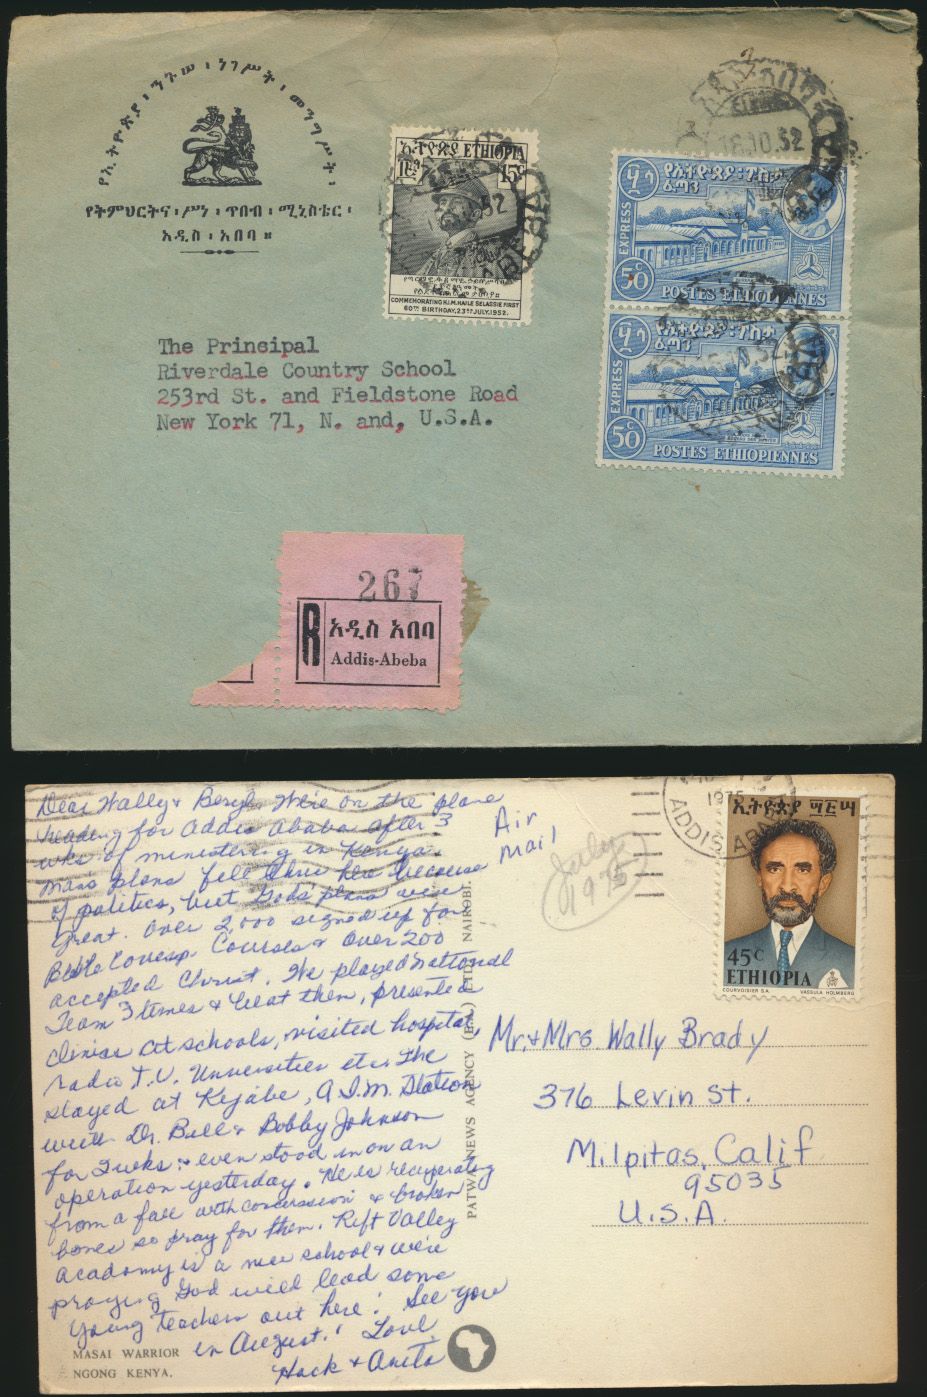 የኢትዮጵያ፡ንጉሠ፡ነገሥት፡መንግሥት፡
የትምህርትና፡ሥነ፡ጥበብ፡ሚኒስቴር፡
አዲስ፡አበባ።
ኢትዮጵያ ETHIOPIA
15c
COMMEMORATING H.I.M. HAILE SELASSIE FIRST
60TH BIRTHDAY, 23RD JULY, 1952.
16.10.52
የኢትዮጵያ፡ፖስታ
ፈጣን
EXPRESS
50c
POSTES ETHIOPIENNES
የኢትዮጵያ፡ፖስታ
ፈጣን
EXPRESS
50c
POSTES ETHIOPIENNES
The Principal
Riverdale Country School
253rd St. and Fieldstone Road
New York 71, N. and, U.S.A.
267
R አዲስ አበባ
Addis-Abeba
Dear Wally & Beryl, We're on the plane
heading for Addis Ababa after 3
wks of ministering in Kenya.
Man's plans fell thru here because
of politics, but God's plans were
great. Over 2,000 signed up for
Bible Corresp. Courses & Over 200
accepted Christ. We played national
Team 3 times & beat them, presented
clinics at schools, visited hospital,
radio T.V. Universities etc. We
stayed at Kijabe, A.I.M. Station
with Dr. Bill & Bobby Johnson
for 2 wks & even stood in on an
operation yesterday. He is recuperating
from a fall with concussion & broken
bones so pray for them. Rift Valley
Academy is a nice school & we're
praying God will lead some
young teachers out here! See you
in August! Love
Hack & Anita
MASAI WARRIOR
NGONG KENYA.
PATWA NEWS AGENCY (E.A.) LTD. NAIROBI.
Air
Mail
July
1975
1975
ADDIS ABABA
ኢትዮጵያ ፵፭ ሣ
45c
ETHIOPIA
COURVOISIER S.A. VASSULA HOLMBERG
Mr. & Mrs. Wally Brady
376 Levin St.
Milpitas, Calif
95035
U.S.A.